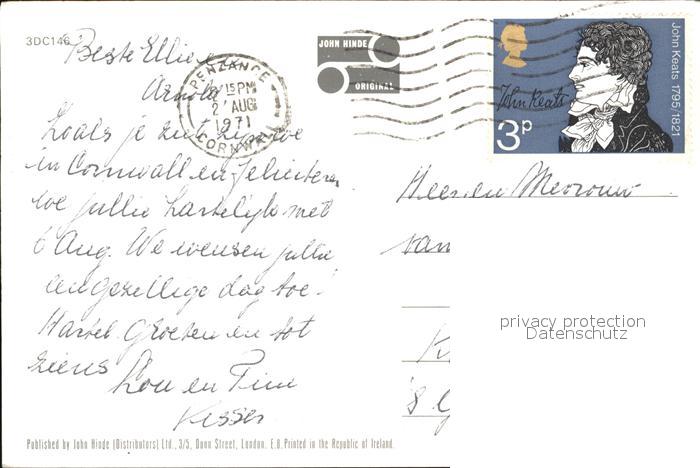 3DC146
Beste Ellie
Arnold
Zoals je ziet zijn we
in Cornwall en feliciteren
we jullie hartelijk met
6 Aug. We wensen jullie
een gezellige dag toe!
Hartel. Groeten en tot
ziens Lou en Tini
Kisser
JOHN HINDE
ORIGINAL
PENZANCE
8 15 PM
2 AUG
1971
CORNWALL
John Keats 1795/1821
John Keats
3p
Heer en Mevrouw
van
K
'S G
privacy protection
Datenschutz
Published by John Hinde (Distributors) Ltd., 3/5, Dunn Street, London. E.8. Printed in the Republic of Ireland.